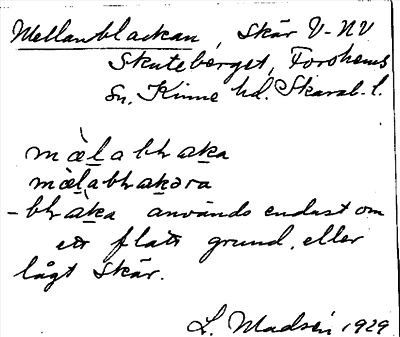 Mellanblackan, Skär V-NV
Skuteberget, Forshems
Sn, Kinne hd. Skarab. l.
mæ̀l̲abl̲ak̲a
mæ̀l̲abl̲ak̲əra
-bl̲àk̲a används endast om
ett flatt grund, eller
lågt skär.
L. Madsén 1929